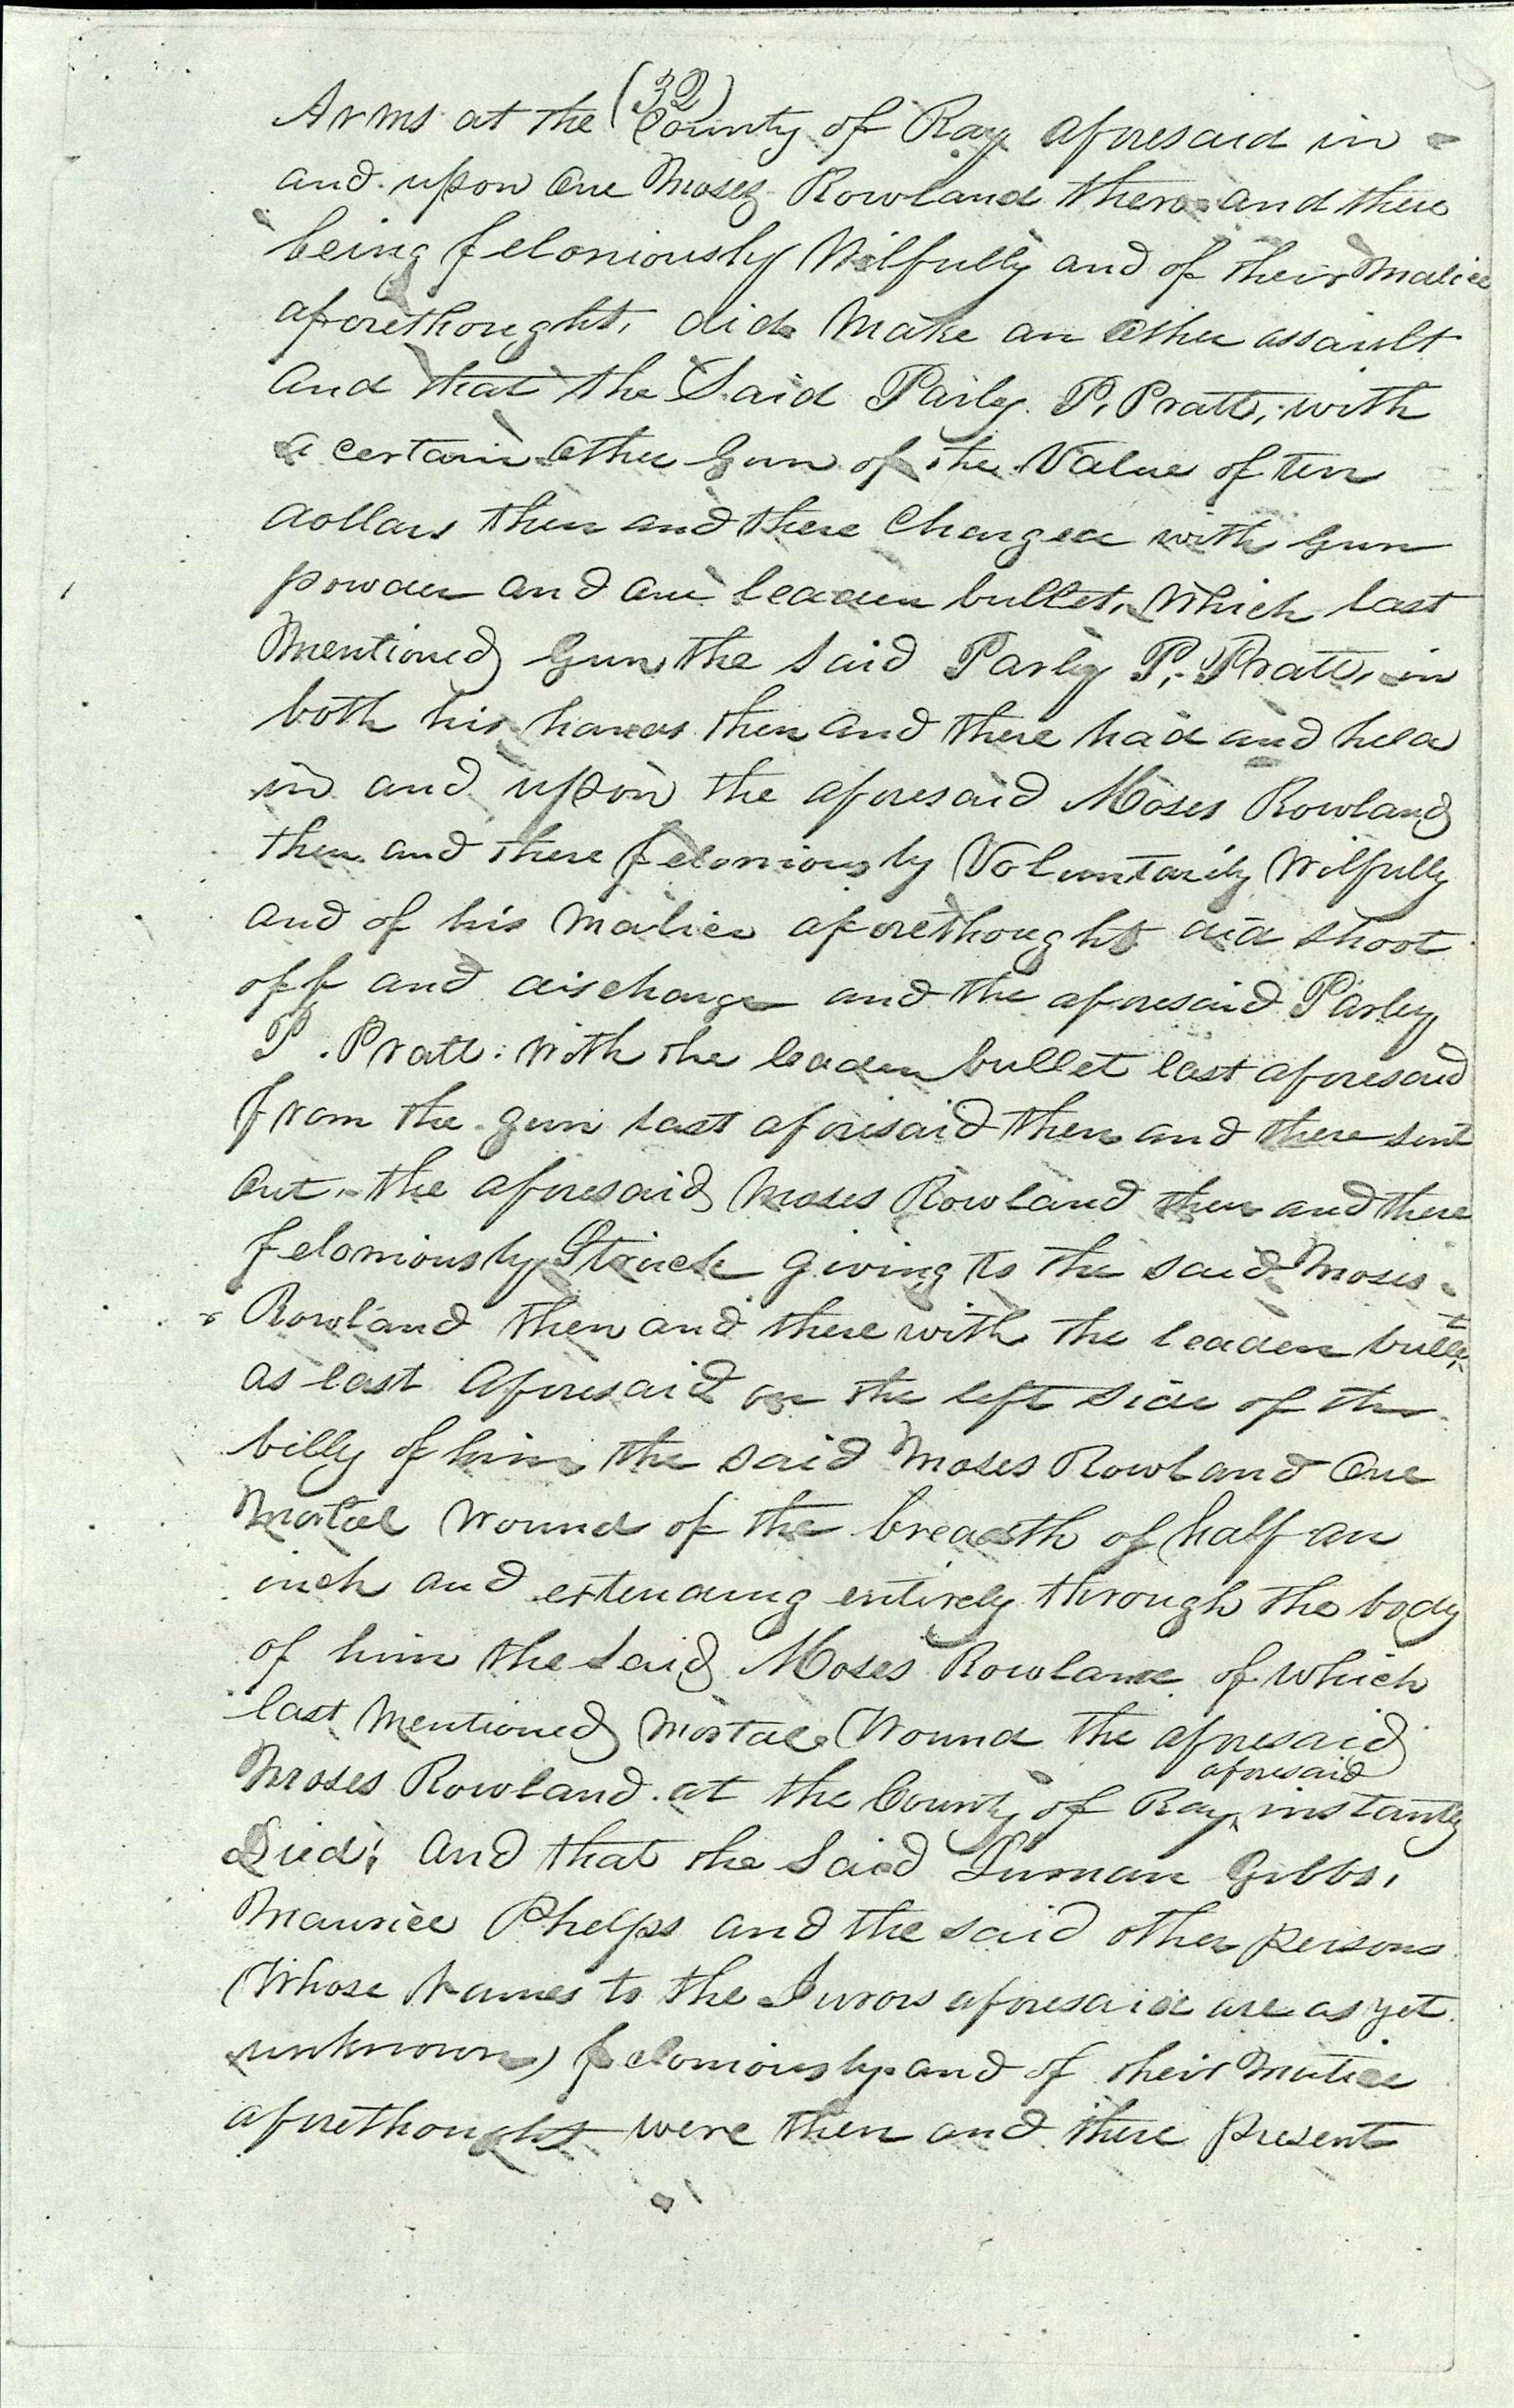 (32)
Arms at the County of Ray aforesaid in
and upon One Moses Rowland then and there
being feloniously Wilfully and of their Malice
aforethought, did Make an Other assault
And that the Said Parley P. Pratt, with
a certain other Gun of the Value of ten
dollars then and there Charged with Gun
powder and one leaden bullet, Which last
Mentioned Gun, the said Parley P. Pratt, in
both his hands then and there had and held
in and upon the aforesaid Moses Rowland
then and there feloniously Voluntarily Wilfully
and of his Malice aforethought did shoot
off and discharge and the aforesaid Parley
P. Pratt. With the leaden bullet last aforesaid
from the gun last aforesaid then and there sent
out. the aforesaid Moses Rowland then and there
feloniously Struck giving to the said Moses
Rowland then and there with the leaden bullet
as last Aforesaid on the left side of the
billy of him the said Moses Rowland One
Mortal Wound of the breadth of half an
inch and extending entirely through the body
of him the said Moses Rowland of which
last Mentioned Mortal Wound the aforesaid
Moses Rowland at the County of Ray aforesaid instantly
Died; And that the Said Luman Gibbs,
Maurice Phelps and the said other persons
(Whose Names to the Jurors aforesaid are as yet
unknown) feloniously and of their Malice
aforethought were then and there present